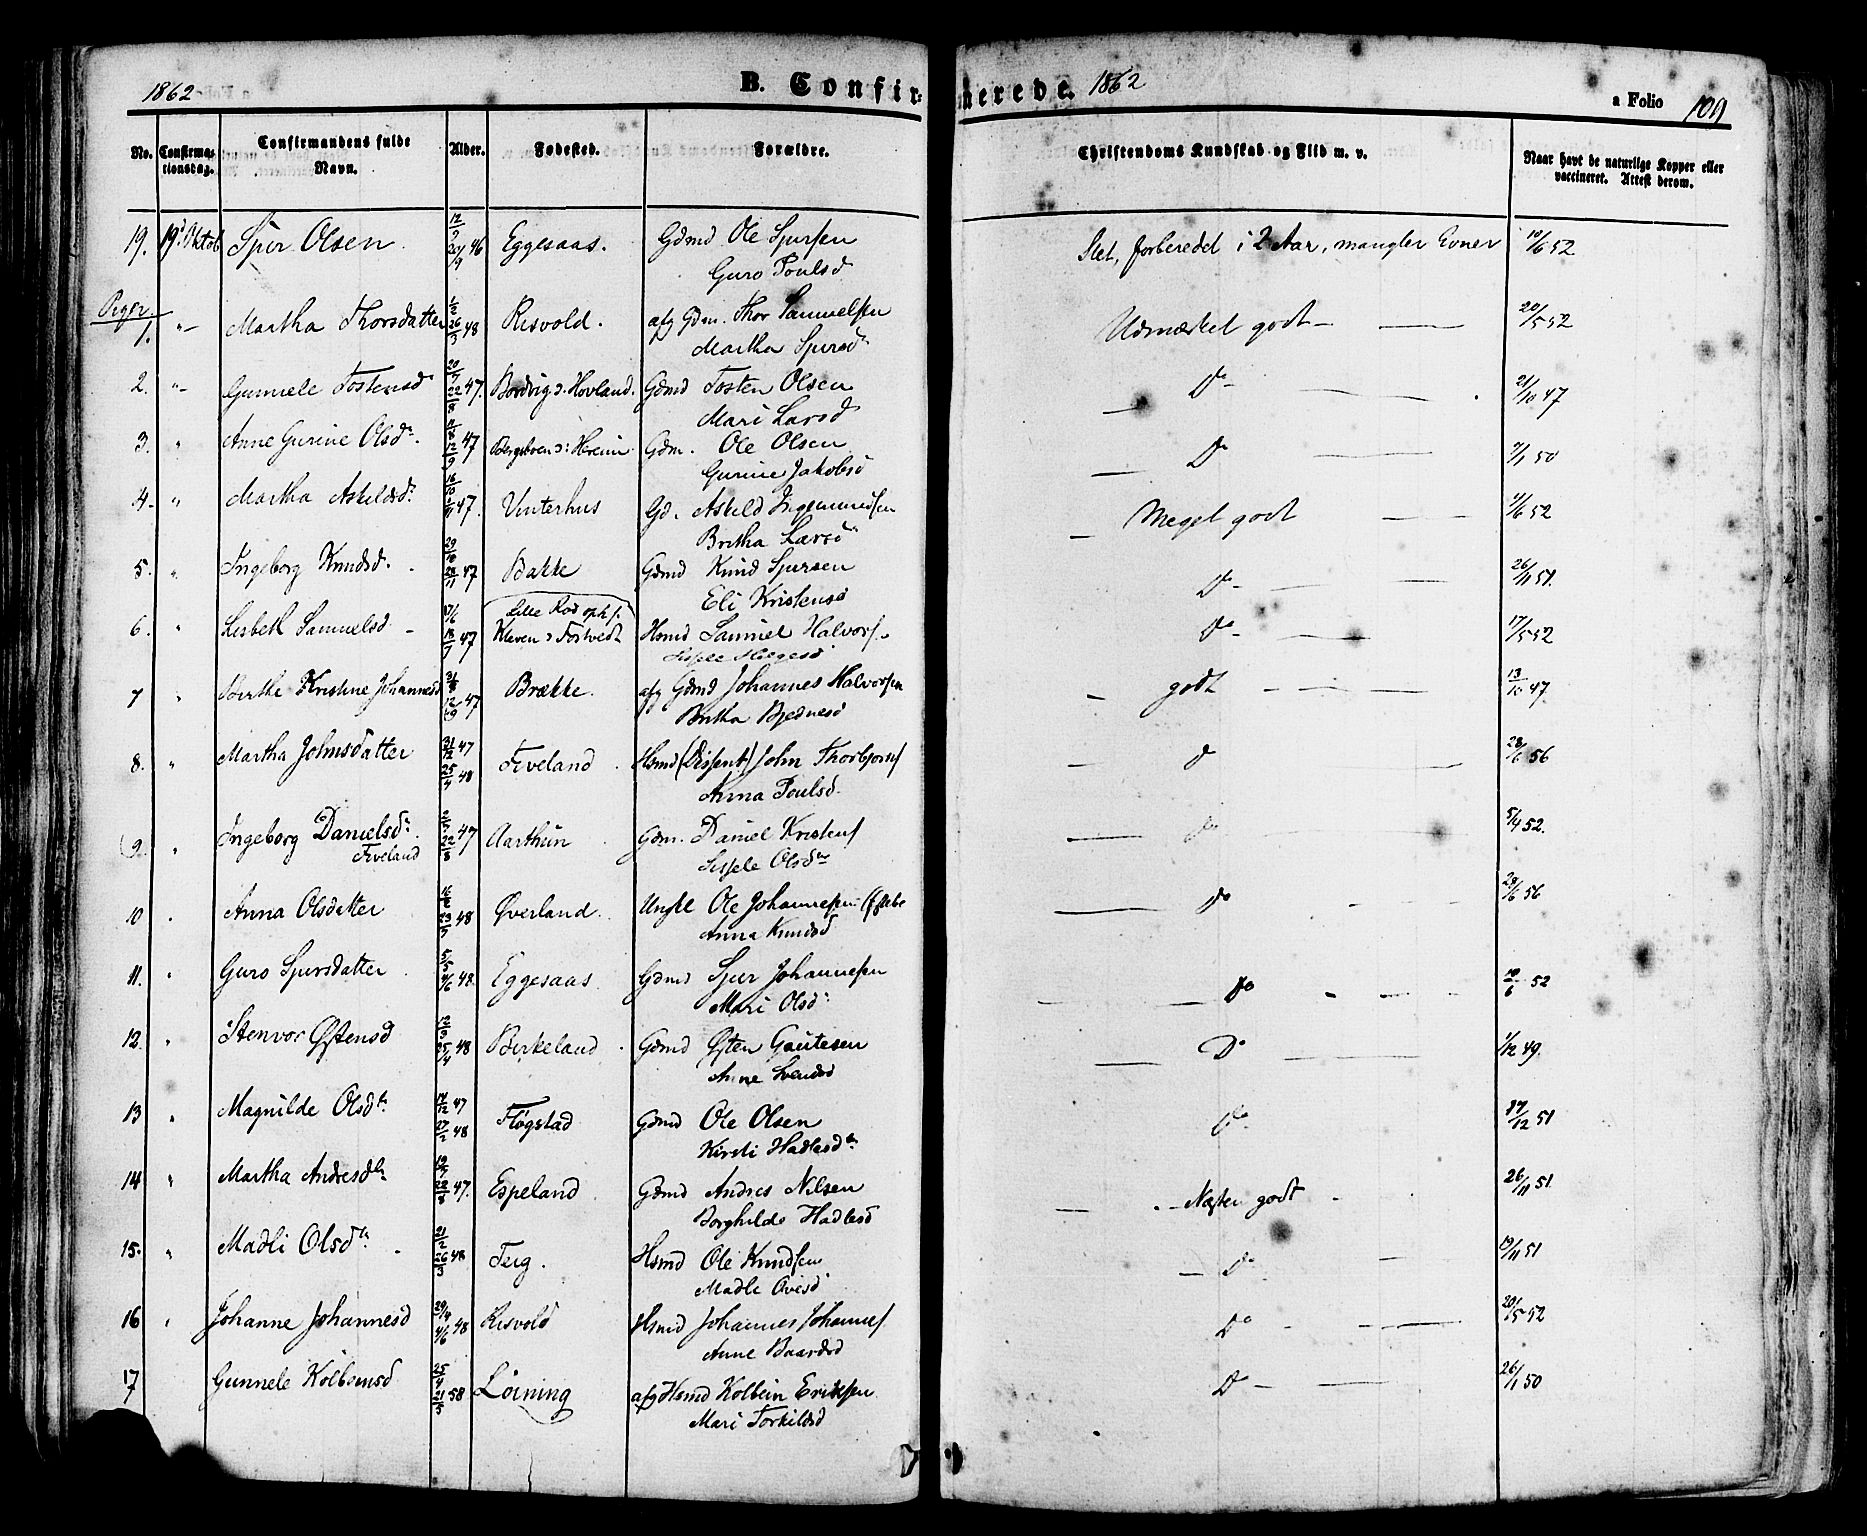 1862 B. Confirmerede. 1862 a Folio 109
No. Confirmationsdag. Confirmandens fulde Navn. Alder. Fødested. Forældre. Christendoms Kundskab og Flid m. v. Naar havt de naturlige Kopper eller vaccineret. Attest derom.
19. 19d Oktob Sjur Olsen 46 Eggesaas. Gdmd Ole Sjursen Slet, forberedet i 2 Aar, mangler Evner 10/6 52
Guro Poulsd
Piger
1. "- Martha Thorsdatter 26/3 48 Risvold. afg Gdm. Thor Samuelsen Udmærket godt 20/5 52
Martha Sjursdr
2. "- Gunnele Tostensd 22/8 47. Hovland. Gdmd Tosten Olsen Do 21/10 47
Mari Larsd
3. " Anne Gurine Olsdr. 12/9 47 Gdm. Ole Olsen Do 7/1 50
Gurine Jakobsd
4. " Martha Askildsdr 47. Vinterhus Gd. Askild Ingemundsen Meget godt 9/6 52
Britha Larsd
5. " Ingeborg Knudsd. 28/11 47 Bakke Gdmd Knud Sjursen Do 26/11 51.
Eli Kristensd
6. " Lisbeth Samuelsd 18/7 47 Kleven Hsmd Samuel Halvors. Do 17/5 52
Sissele Helgesd
7 " Berthe Kristine Johannesd 12/9 47 Brække. afg Gdmd Johannes Halvorsen godt 13/10 47.
Britha Bjednesd
8. " Martha Johnsdatter 31/12 47 25/4 48 Fiveland Hsmd (Dissent) John Thorbjorns do 28/6 56
Anna Poulsd.
9. " Ingeborg Danielsdr. 22/8 47 Aarthun Gdm. Daniel Kristens do 5/4 52.
Fiveland Sissele Olsdtr
10 Anna Olsdatter 23/3 48 Øverland. Ungkl Ole Johannesen do 28/6 56
Anna Knudsd
11. " Guro Sjursdatter 5/5 4/6 48 Eggesaas Gdmd Sjur Johannesen do 10/6 52
Mari Olsdr
12. " Stenvor Østensd 25/4 48 Birkeland Gdmd Østen Gautesen Do 1/12 49.
Anne Svendsd
13 " Magnilde Olsdtr 12 47 27/2 48 Fløgstad Gdmd Ole Olsen Do 12 51
Kirsti Hadlesdtr
14 " Martha Andresdtr 29/8 47. Espeland Gdmd Andres Nilsen Næsten godt 26/11 51.
Borghilde Hadlesd
15. " Madli Olsdtr. 21/2 26/3 48 Teig. Hsmd Ole Knudsen Do 19/11 51
Madle Ovesd
16 " Johanne Johannesd 29/4 4/6 48 Risvold Hsmd Johannes Johannes Do 20/5 52
Anne Baardsd
17 Gunnele Kolbensd 25/4 21/5 58 Løining afg Hsmd Kolbein Eriksen Do 26/1 50
Mari Torkildsd